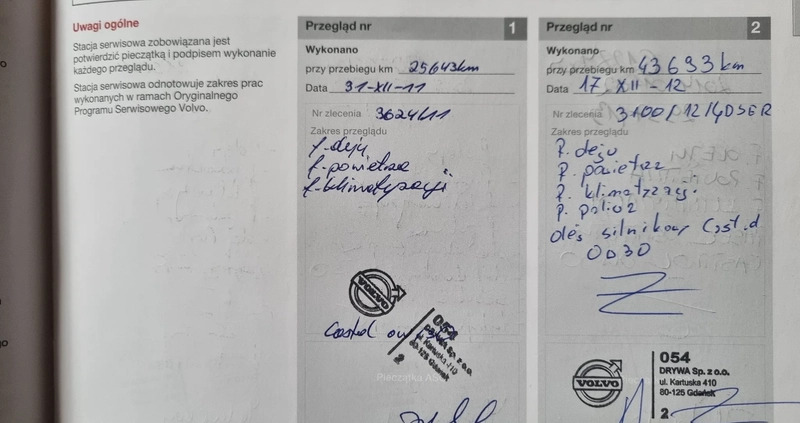 Uwagi ogólne
Stacja serwisowa zobowiązana jest
potwierdzić pieczątką i podpisem wykonanie
każdego przeglądu.
Stacja serwisowa odnotowuje zakres prac
wykonanych w ramach Oryginalnego
Programu Serwisowego Volvo.
Przegląd nr 1
Wykonano
przy przebiegu km 25643km
Data 31-XII-11
Nr zlecenia 3624/11
Zakres przeglądu
f. oleju
f. powietrza
f. klimatyzacji
VOLVO
Castrol
054
DRYWA Sp. z o.o.
ul. Kartuska 410
80-125 Gdańsk
2
Pieczątka AS
Przegląd nr 2
Wykonano
przy przebiegu km 43693 km
Data 17 XII - 12
Nr zlecenia 3100/12/GDSER
Zakres przeglądu
F. oleju
F. powietrza
F. klimatyzacj.
F. paliwa
olej silnikowy Cast.d
0W30
VOLVO
054
DRYWA Sp. z o.o.
ul. Kartuska 410
80-125 Gdańsk
2